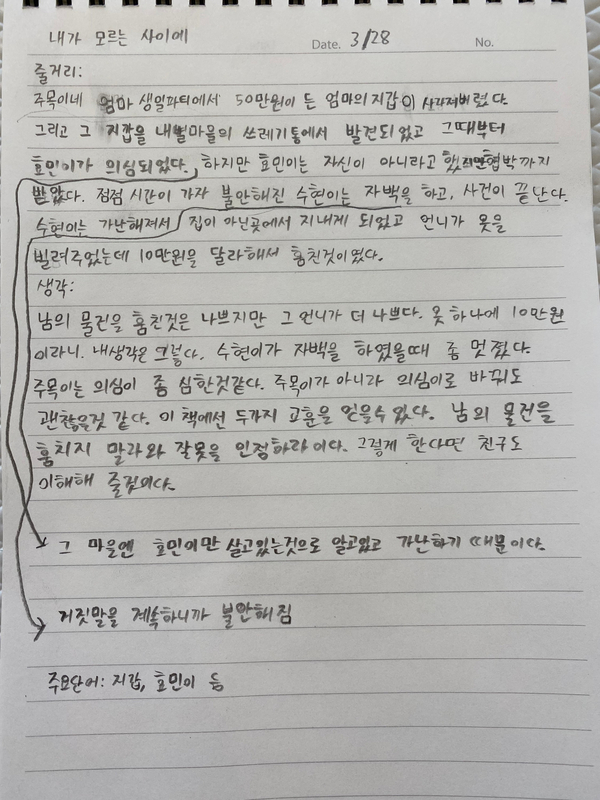 내가 모르는 사이에
Date. 3/28 No.
줄거리:
주목이네 엄마 생일파티에서 50만원이 든 엄마의 지갑이 사라져버렸다.
그리고 그 지갑을 내별마을의 쓰레기통에서 발견되었고 그때부터
효민이가 의심되었다. 하지만 효민이는 자신이 아니라고 했지만협박까지
받았다. 점점 시간이 가자 불안해진 수현이는 자백을 하고, 사건이 끝난다.
수현이는 가난해져서 집이 아닌곳에서 지내게 되었고 언니가 옷을
빌려주었는데 10만원을 달라해서 훔친것이였다.
생각:
남의 물건을 훔친것은 나쁘지만 그 언니가 더 나쁘다. 옷 하나에 10만원
이라니. 내생각은 그렇다. 수현이가 자백을 하였을때 좀 멋졌다.
주목이는 의심이 좀 심한것같다. 주목이가 아니라 의심이로 바꿔도
괜찮을것 같다. 이 책에선 두가지 교훈을 얻을수 있다. 남의 물건을
훔치지 말라와 잘못을 인정하라이다. 그렇게 한다면 친구도
이해해 줄것이다.
그 마을엔 효민이만 살고있는것으로 알고있고 가난하기 때문이다.
거짓말을 계속하니까 불안해짐
주요단어: 지갑, 효민이 등